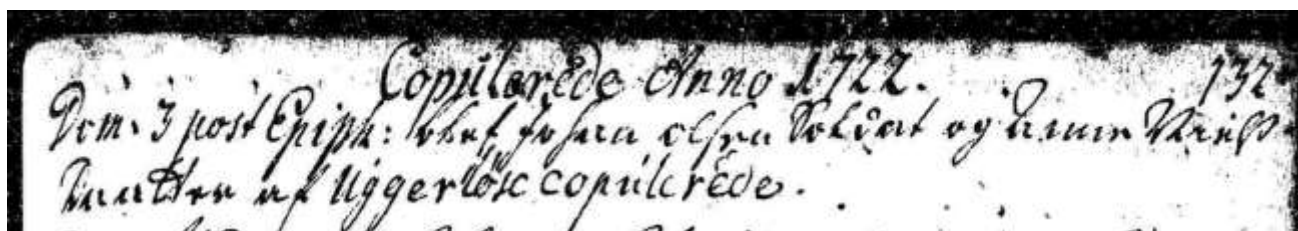 Copulerede Anno 1722. 132
Dom. 3 post Epiph: blef Johan Olsen Soldat og Anne Niels
Daatter af Uggerløse copulerede.